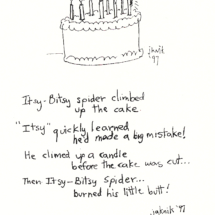 '97
Itsy-Bitsy spider climbed
up the cake
"Itsy" quickly learned
he'd made a big mistake!
He climed up a candle
before the cake was cut...
Then Itsy-Bitsy Spider...
burned his little butt!
'97